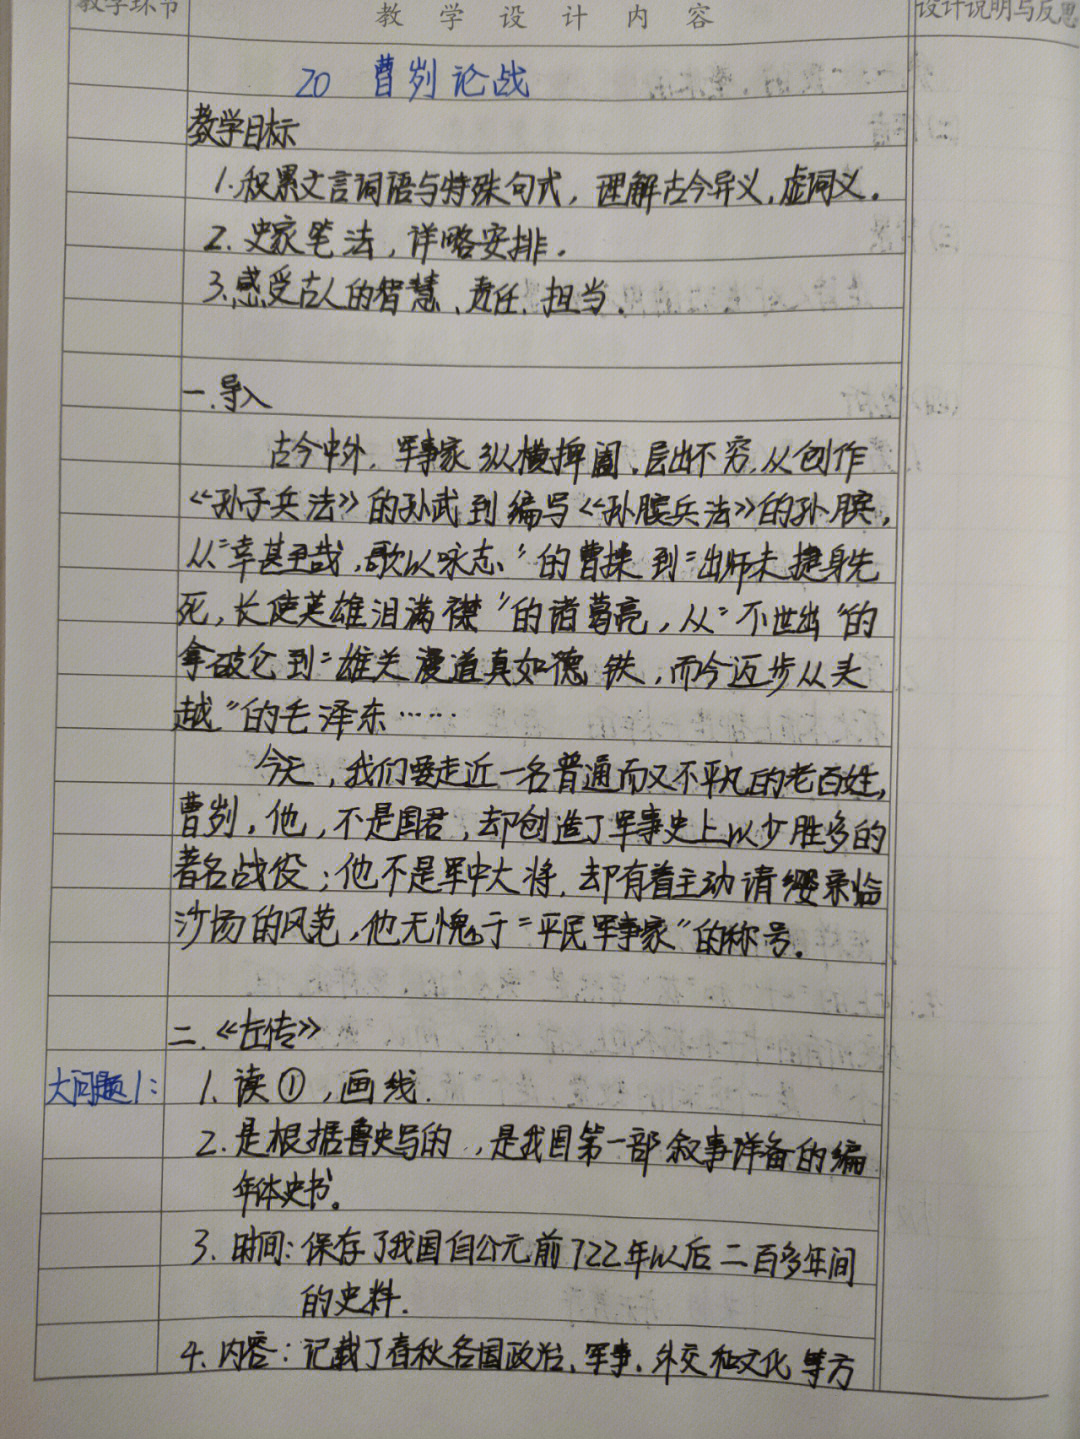 教学环节 教学设计内容 设计说明与反思
20 曹刿论战
教学目标
1.积累文言词语与特殊句式，理解古今异义，虚词义。
2.史家笔法，详略安排。
3.感受古人的智慧、责任、担当。
一.导入
古今中外，军事家纵横捭阖，层出不穷，从创作
《孙子兵法》的孙武到编写《孙膑兵法》的孙膑，
从“幸甚至哉，歌以咏志”的曹操到“出师未捷身先
死，长使英雄泪满襟”的诸葛亮，从“不世出”的
拿破仑到“雄关漫道真如德铁，而今迈步从头
越”的毛泽东……
今天，我们要走近一名普通而又不平凡的老百姓，
曹刿，他，不是国君，却创造了军事史上以少胜多的
著名战役；他不是军中大将，却有着主动请缨亲临
沙场的风范，他无愧于“平民军事家”的称号。
二.《左传》
大问题1： 1.读①，画线.
2.是根据鲁史写的，是我国第一部叙事详备的编
年体史书。
3.时间：保存了我国自公元前722年以后二百多年间
的史料.
4.内容：记载了春秋各国政治、军事、外交和文化等方